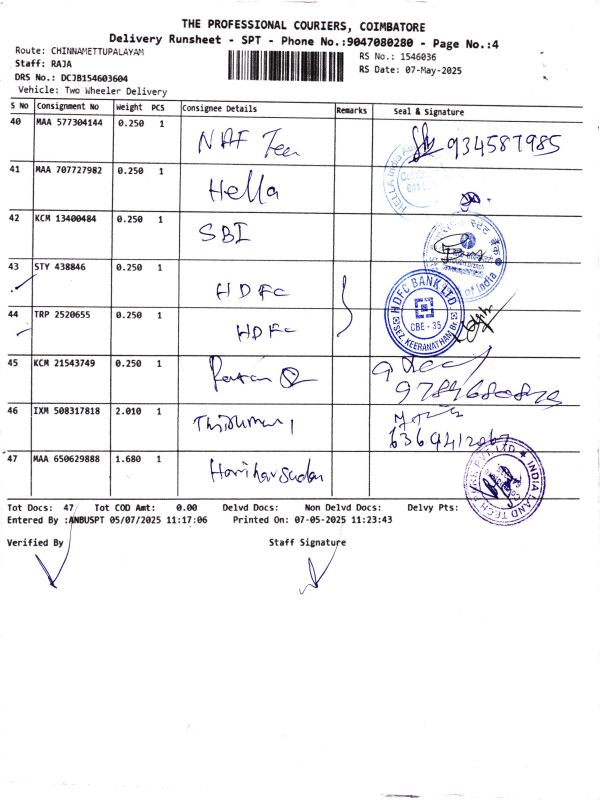 THE PROFESSIONAL COURIERS, COIMBATORE
Delivery Runsheet - SPT - Phone No.:9047080280 - Page No.:4
Route: CHINNAMETTUPALAYAM
RS No.: 1546036
Staff: RAJA
RS Date: 07-May-2025
DRS No.: DCJB154603604
Vehicle: Two Wheeler Delivery
S No Consignment No Weight PCS Consignee Details Remarks Seal & Signature
40 MAA 577304144 0.250 1 NAF 934587985
41 MAA 707727982 0.250 1 Hella
HELLA India
42 KCM 13400484 0.250 1 SBI
स्टेट बैंक
of India
43 STY 438846 0.250 1 HDFC
HDFC BANK LTD.
CBE - 35
SEZ, KEERANATHAM Br.
44 TRP 2520655 0.250 1 HDFC
45 KCM 21543749 0.250 1
46 IXM 508317818 2.010 1
6369412067
47 MAA 650629888 1.680 1 Hariharsudan
INDIA LAND TECH PVT. LTD
Tot Docs: 47 Tot COD Amt: 0.00 Delvd Docs: Non Delvd Docs: Delvy Pts:
Entered By :ANBUSPT 05/07/2025 11:17:06 Printed On: 07-05-2025 11:23:43
Verified By Staff Signature